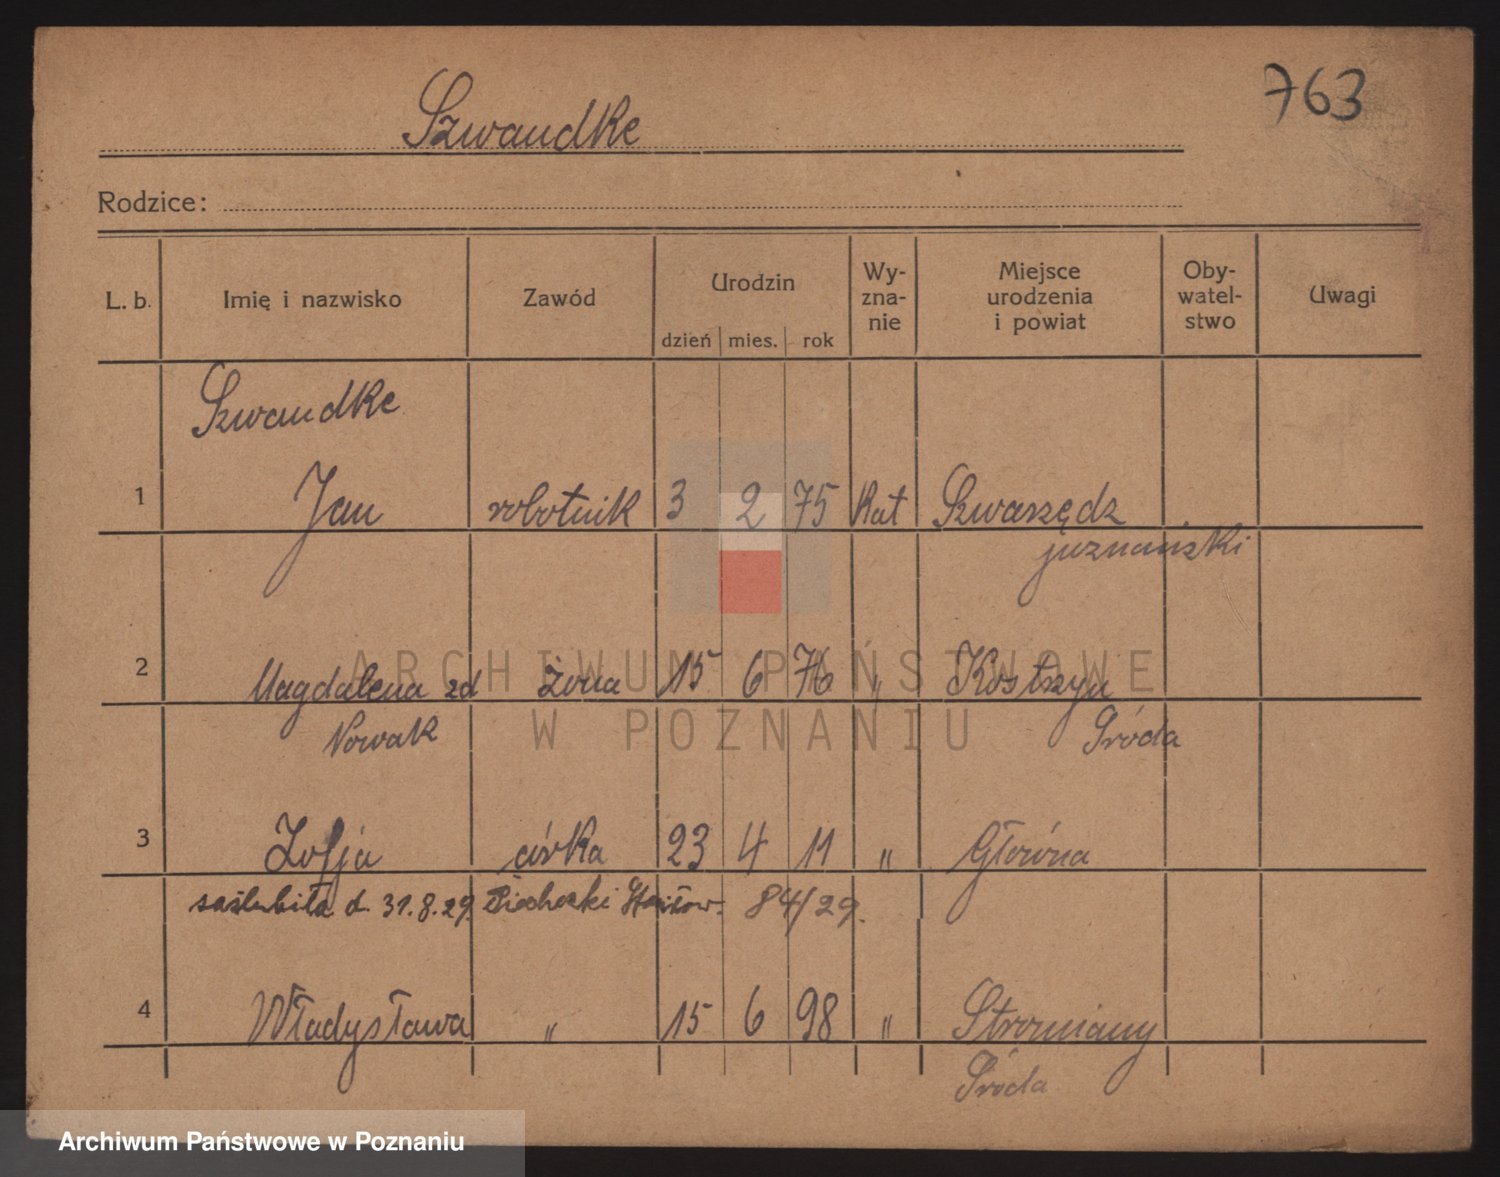 763
Szwandke
Rodzice:
L. b. Imię i nazwisko Zawód Urodzin dzień mies. rok Wy-zna-nie Miejsce urodzenia i powiat Oby-watel-stwo Uwagi
Szwandke
1 Jan robotnik 3 2 75 Kat Szwarzędz
poznański
2 Magdalena zd żona 15 6 76 " Kostrzyn
Nowak Środa
3 Zofja córka 23 4 11 " Główna
zaślubiła d. 31.8.29. 84/29.
4 Władysława " 15 6 98 "
Środa
ARCHIWUM PAŃSTWOWE
W POZNANIU
Archiwum Państwowe w Poznaniu